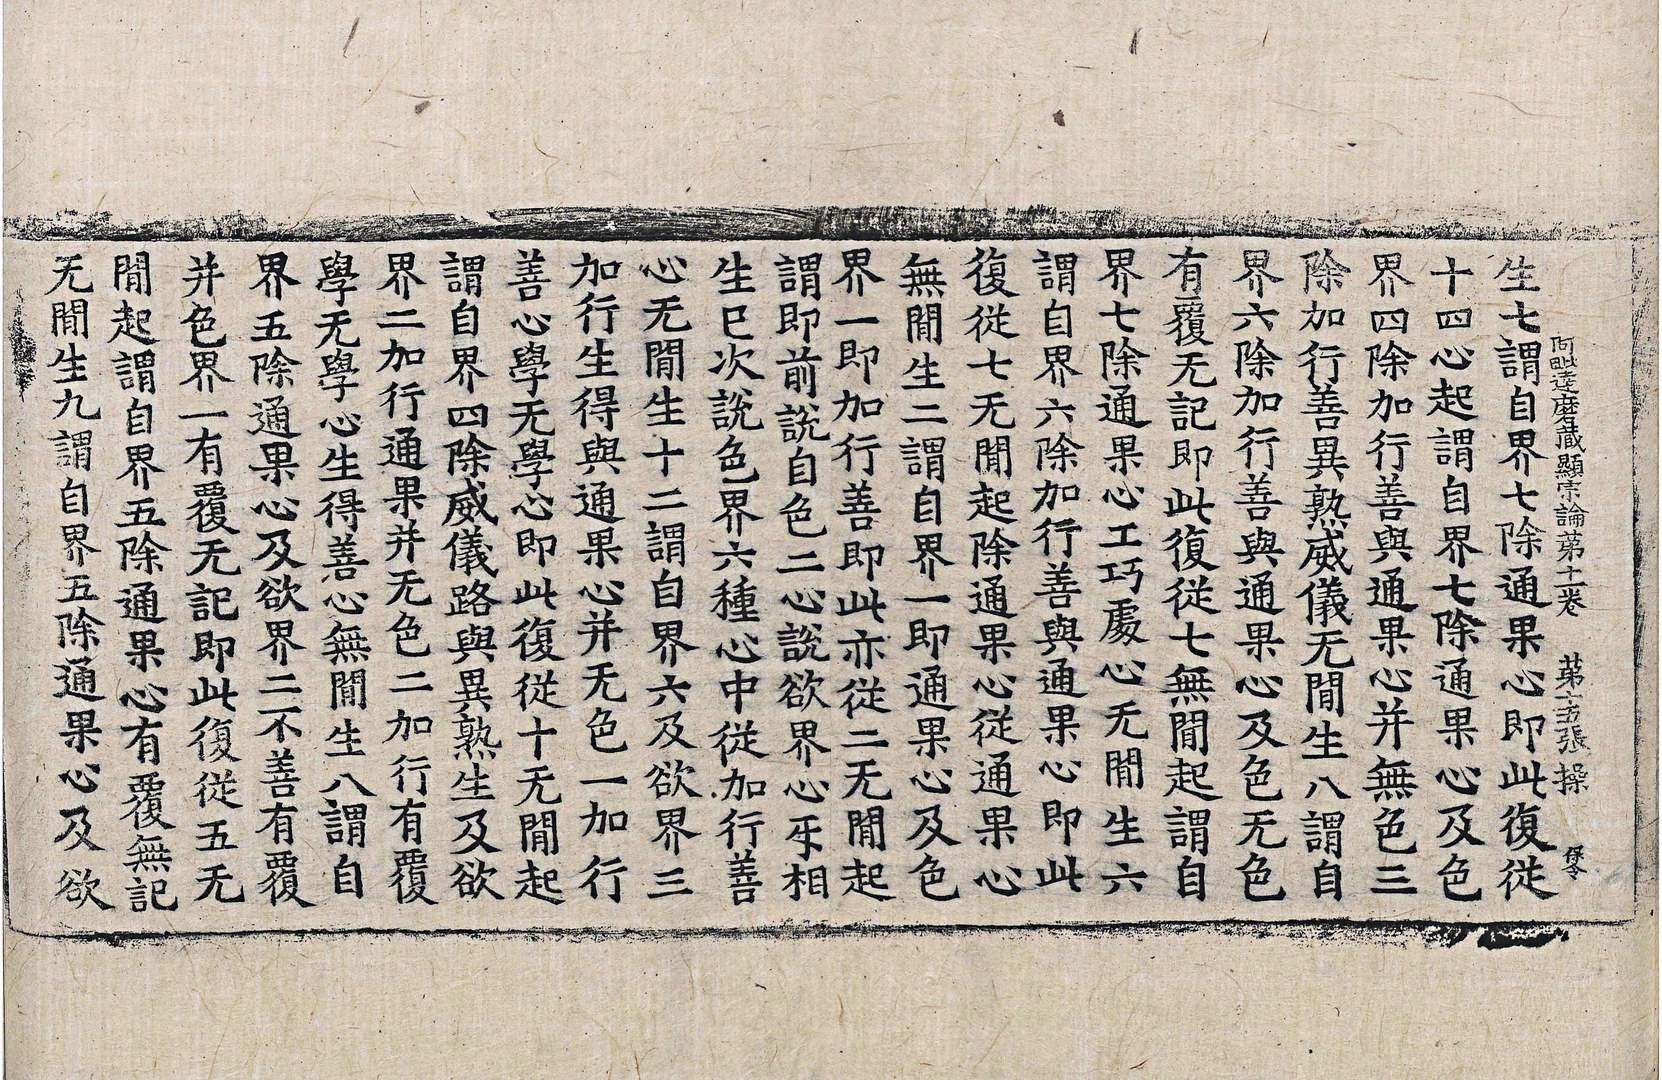 阿毗達磨藏顯宗論第十一卷 第十五張 操
生七謂自界七除通果心即此復從
十四心起謂自界七除通果心及色
界四除加行善與通果心并無色三
除加行善異熟威儀无間生八謂自
界六除加行善與通果心及色无色
有覆无記即此復從七無間起謂自
界七除通果心工巧處心无間生六
謂自界六除加行善與通果心即此
復從七无間起除通果心從通果心
無間生二謂自界一即通果心及色
界一即加行善即此亦從二无間起
謂即前說自色二心說欲界心乎相
生已次說色界六種心中從加行善
心无間生十二謂自界六及欲界三
加行生得與通果心并无色一加行
善心學无學心即此復從十无間起
謂自界四除威儀路與異熟生及欲
界二加行通果并无色二加行有覆
學无學心生得善心無間生八謂自
界五除通果心及欲界二不善有覆
并色界一有覆无記即此復從五无
間起謂自界五除通果心有覆無記
无間生九謂自界五除通果心及欲